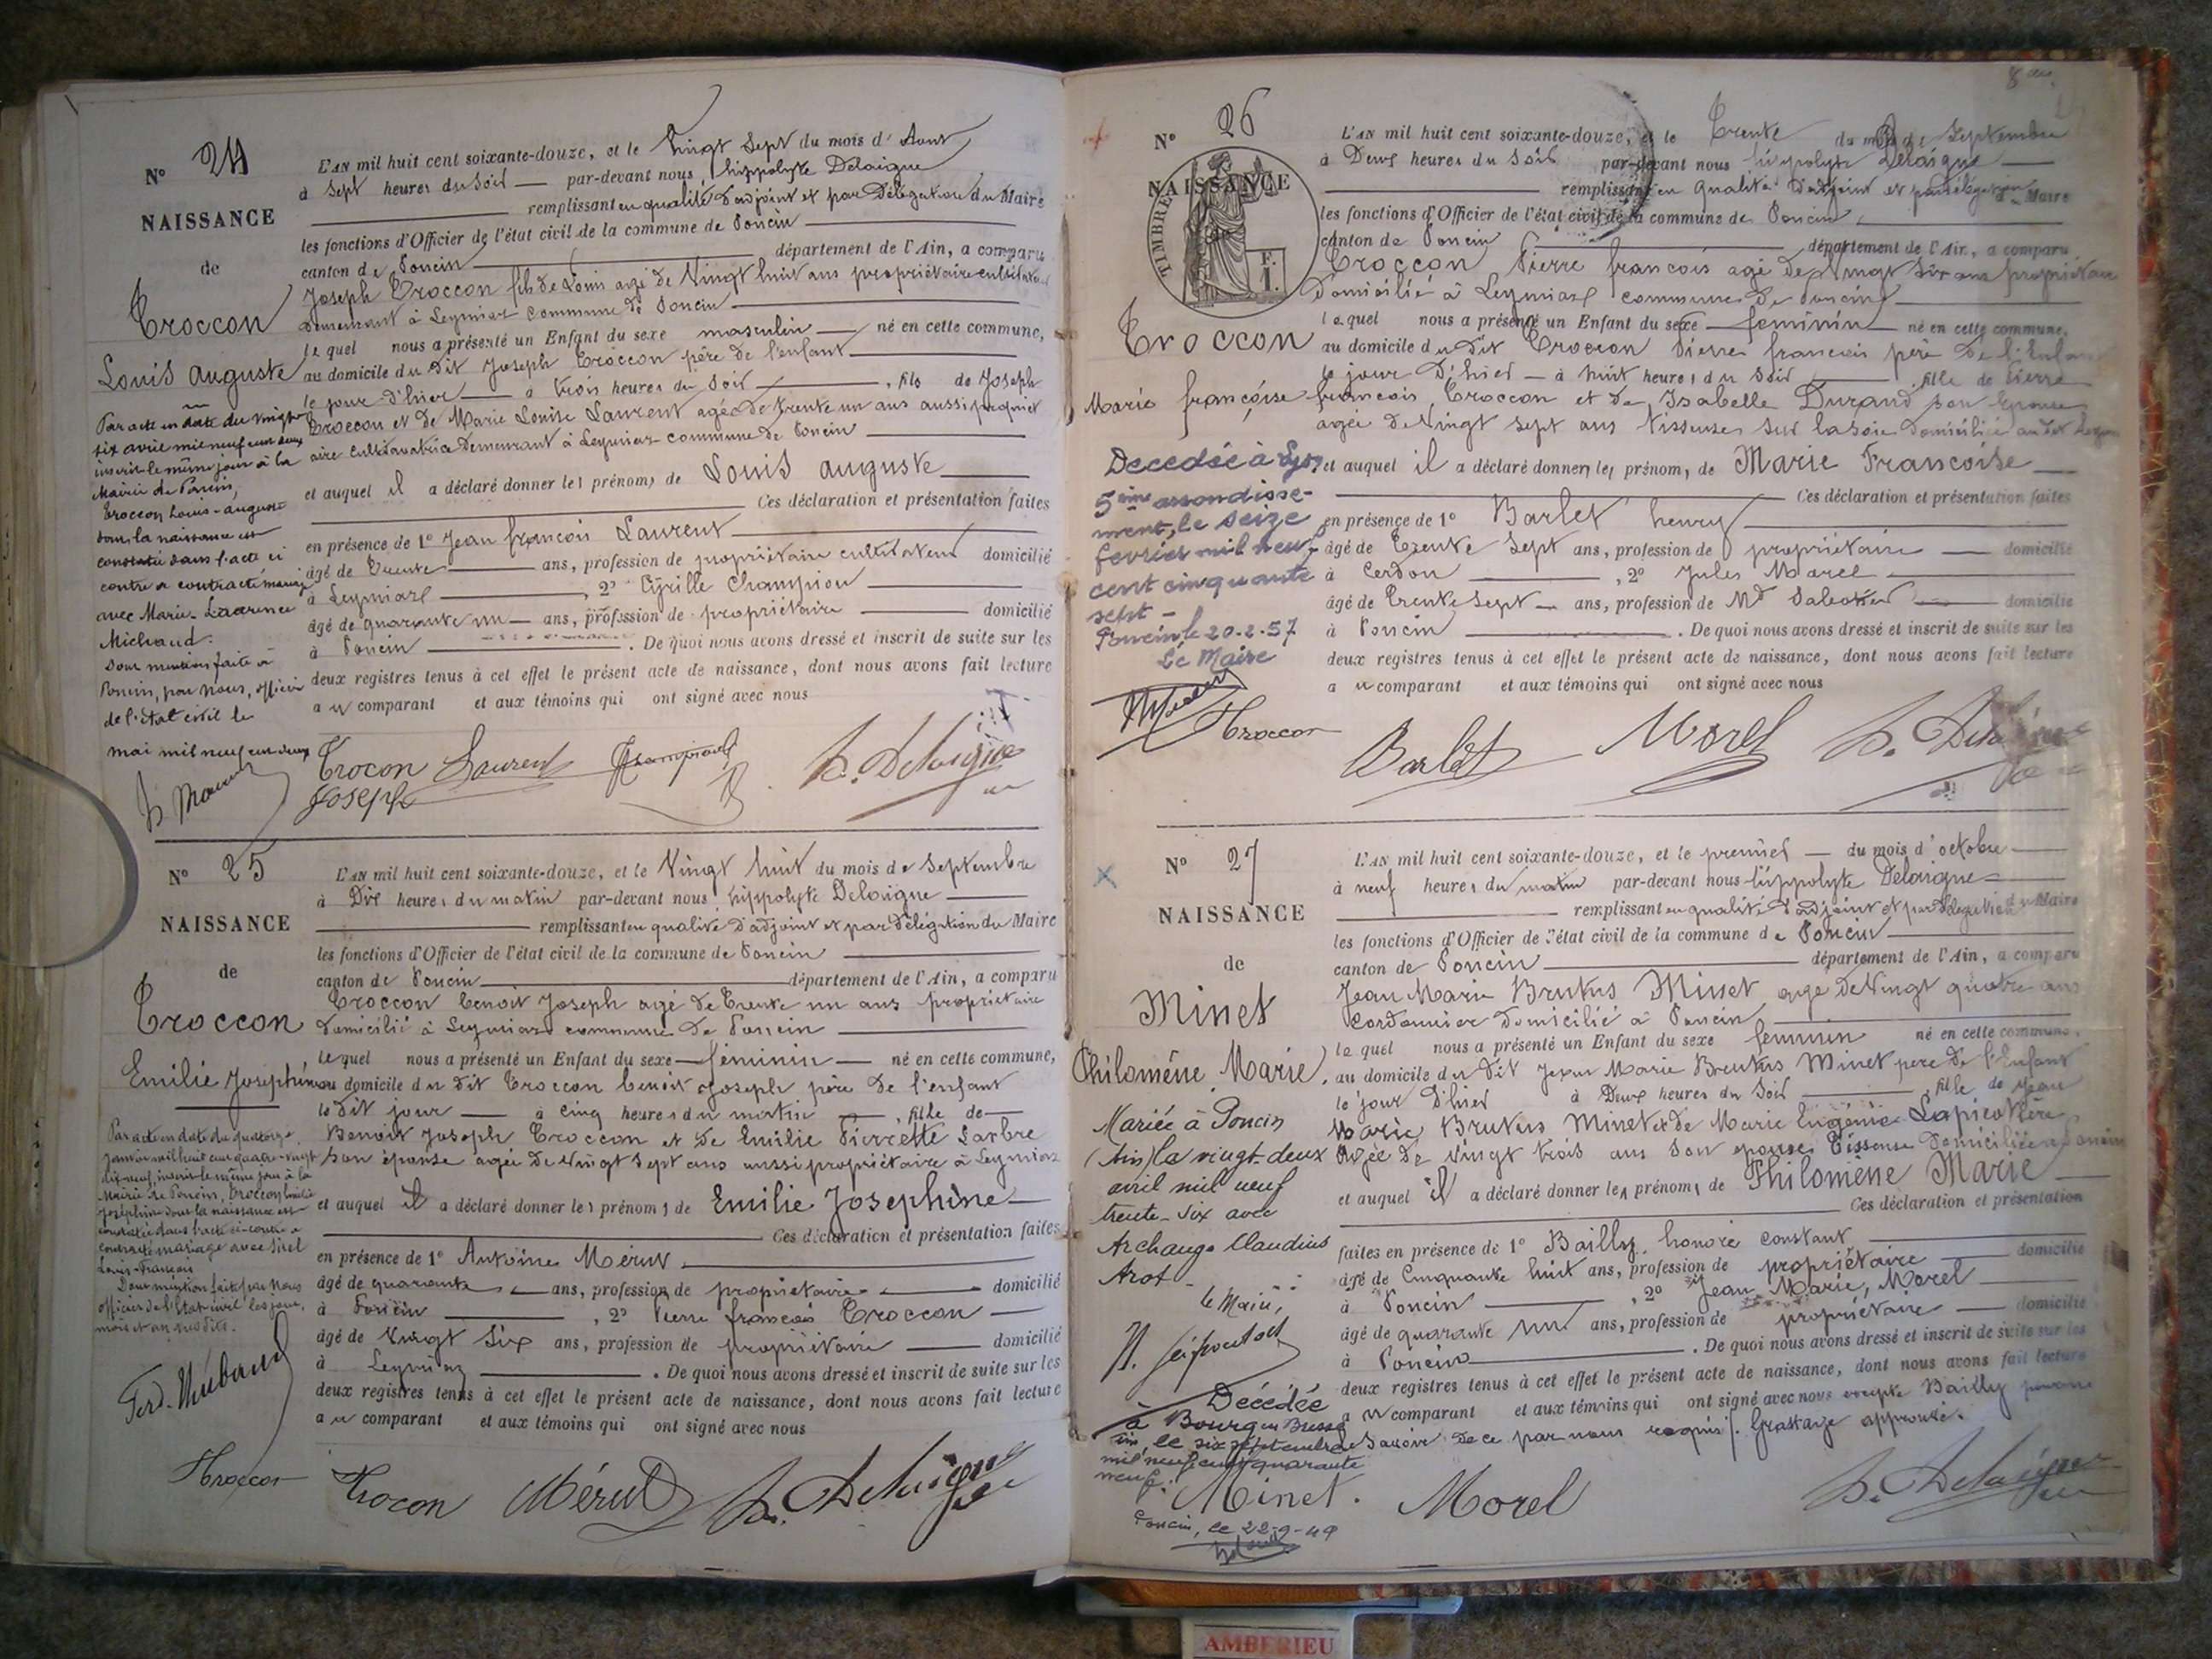 N° 24
NAISSANCE
de
Troccon
Louis auguste
Par acte en date du vingt
six avril mil neuf cent deux
inscrit le même jour à la
Mairie de Poncin,
Troccon Louis-auguste
dont la naissance est
constatée dans l'acte ci
contre a contracté mariage
avec Marie-Laurence
Michaud.
Dont mention faite à
Poncin, par nous, officier
de l'état civil le
mai mil neuf cent deux
L'AN mil huit cent soixante-douze, et le Vingt Sept du mois d'Aout
à Sept heures du Soir par-devant nous, hippolyte Delaigue
remplissant en qualité d'adjoint et par Délégation du Maire
les fonctions d'Officier de l'état civil de la commune de Poncin
canton de Poncin département de l'Ain, a comparu
Joseph Troccon fils de Louis agé de Vingt huit ans propriétaire cultivateur
demeurant à Leymiaz commune de Poncin
lequel nous a présenté un Enfant du sexe masculin né en cette commune,
au domicile du dit Joseph Troccon père de l'enfant
le jour d'hier à trois heures du Soir, fils de Joseph
Troccon et de Marie Louise Laurent agée de trente un ans aussi propriét
aire cultivatrice demeurant à Leymiaz commune de Poncin
et auquel il a déclaré donner les prénoms de Louis auguste
Ces déclaration et présentation faites
en présence de 1° Jean françois Laurent
âgé de Trente ans, profession de propriétaire cultivateur domicilié
à Leymiaz, 2° Cyrille Champion
âgé de quarante un ans, profession de propriétaire domicilié
à Poncin. De quoi nous avons dressé et inscrit de suite sur les
deux registres tenus à cet effet le présent acte de naissance, dont nous avons fait lecture
au comparant et aux témoins qui ont signé avec nous
Trocon Laurent Champion h. Delaigue
Joseph
N° 25
NAISSANCE
de
Troccon
Emilie Joséphine
Par acte en date du quatorze
janvier mil huit cent quatre-vingt
dix neuf, inscrit le même jour à la
Mairie de Poncin, Troccon Emilie
Joséphine dont la naissance est
constatée dans l'acte ci-contre a
contracté mariage avec
Louis-François
Dont mention faite par nous
officier de l'état civil les jour,
mois et an susdits.
L'AN mil huit cent soixante-douze, et le Vingt huit du mois de Septembre
à Dix heures du matin par-devant nous, hippolyte Delaigue
remplissant en qualité d'adjoint et par délégation du Maire
les fonctions d'Officier de l'état civil de la commune de Poncin
canton de Poncin département de l'Ain, a comparu
Troccon benoit Joseph agé de Trente un ans propriétaire
domicilié à Leymiaz commune de Poncin
lequel nous a présenté un Enfant du sexe féminin né en cette commune,
au domicile du dit Troccon benoit Joseph père de l'enfant
le dit jour à cinq heures du matin, fille de
Benoit Joseph Troccon et de Emilie Pierrette Larbre
son épouse agée de Vingt Sept ans aussi propriétaire à Leymiaz
et auquel il a déclaré donner les prénoms de Emilie Josephine
Ces déclaration et présentation faites
en présence de 1° Antoine Mérut
âgé de quarante ans, profession de propriétaire domicilié
à Poncin, 2° Pierre françois Troccon
âgé de Vingt Six ans, profession de propriétaire domicilié
à Leymiaz. De quoi nous avons dressé et inscrit de suite sur les
deux registres tenus à cet effet le présent acte de naissance, dont nous avons fait lecture
au comparant et aux témoins qui ont signé avec nous
Troccon Trocon Mérut h. Delaigue
N° 26
NAISSANCE
TIMBRE
F.
1.
Troccon
Marie françoise
Decedée à Lyon
5ème arrondisse-
ment, le seize
février mil neuf
cent cinquante
sept -
Poncin le 20-2-57
Le Maire
L'AN mil huit cent soixante-douze, et le Trente du mois de Septembre
à Deux heures du Soir par-devant nous hippolyte Delaigue
remplissant en qualité d'adjoint et par délégation du Maire
les fonctions d'Officier de l'état civil de la commune de Poncin
canton de Poncin département de l'Ain, a comparu
Troccon Pierre françois agé de Vingt Six ans propriétaire
Domicilié à Leymiaz commune de Poncin
lequel nous a présenté un Enfant du sexe féminin né en cette commune,
au domicile du dit Troccon Pierre françois père de l'enfant
le jour d'hier à huit heures du Soir fille de Pierre
françois Troccon et de Isabelle Durand son épouse
agée de Vingt Sept ans Tisseuse sur la Soie domiciliée au dit
et auquel il a déclaré donner les prénoms de Marie Francoise
Ces déclaration et présentation faites
en présence de 1° Barlet henry
âgé de Trente Sept ans, profession de propriétaire domicilié
à Cerdon, 2° Jules Morel
âgé de Trente Sept ans, profession de Md domicilié
à Poncin. De quoi nous avons dressé et inscrit de suite sur les
deux registres tenus à cet effet le présent acte de naissance, dont nous avons fait lecture
au comparant et aux témoins qui ont signé avec nous
Troccon Barlet Morel h. Delaigue
N° 27
NAISSANCE
de
Minet
Philomène Marie.
Mariée à Poncin
(Ain) le vingt-deux
avril mil neuf
trente-six avec
Archange Claudius
Arot -
Le Maire,
Décédée
à Bourg en Bresse
Ain, le six septembre
mil neuf cent quarante
neuf.
Poncin, le 22-9-49
L'AN mil huit cent soixante-douze, et le premier du mois d'octobre
à neuf heures du matin par-devant nous hippolyte Delaigue
remplissant en qualité d'adjoint et par Délégation du Maire
les fonctions d'Officier de l'état civil de la commune de Poncin
canton de Poncin département de l'Ain, a comparu
Jean Marie Brutus Minet agé de Vingt quatre ans
Cordonnier domicilié à Poncin
lequel nous a présenté un Enfant du sexe feminin né en cette commune,
au domicile du dit Jean Marie Brutus Minet pere de l'Enfant
le jour d'hier à Deux heures du Soir, fille de Jean
Marie Brutus Minet et de Marie Eugénie Lapicotière
agée de Vingt trois ans son epouse Tisseuse domiciliée à Poncin
et auquel il a déclaré donner les prénoms de Philomène Marie
Ces déclaration et présentation
faites en présence de 1° Bailly honoré constant
âgé de Cinquante huit ans, profession de propriétaire domicilié
à Poncin, 2° Jean Marie, Morel
âgé de quarante un ans, profession de propriétaire domicilié
à Poncin. De quoi nous avons dressé et inscrit de suite sur les
deux registres tenus à cet effet le présent acte de naissance, dont nous avons fait lecture
au comparant et aux témoins qui ont signé avec nous excepté Bailly pour ne
le Savoir de ce par nous requis/. Grattage approuvé.
Minet. Morel h. Delaigue
AMBERIEU